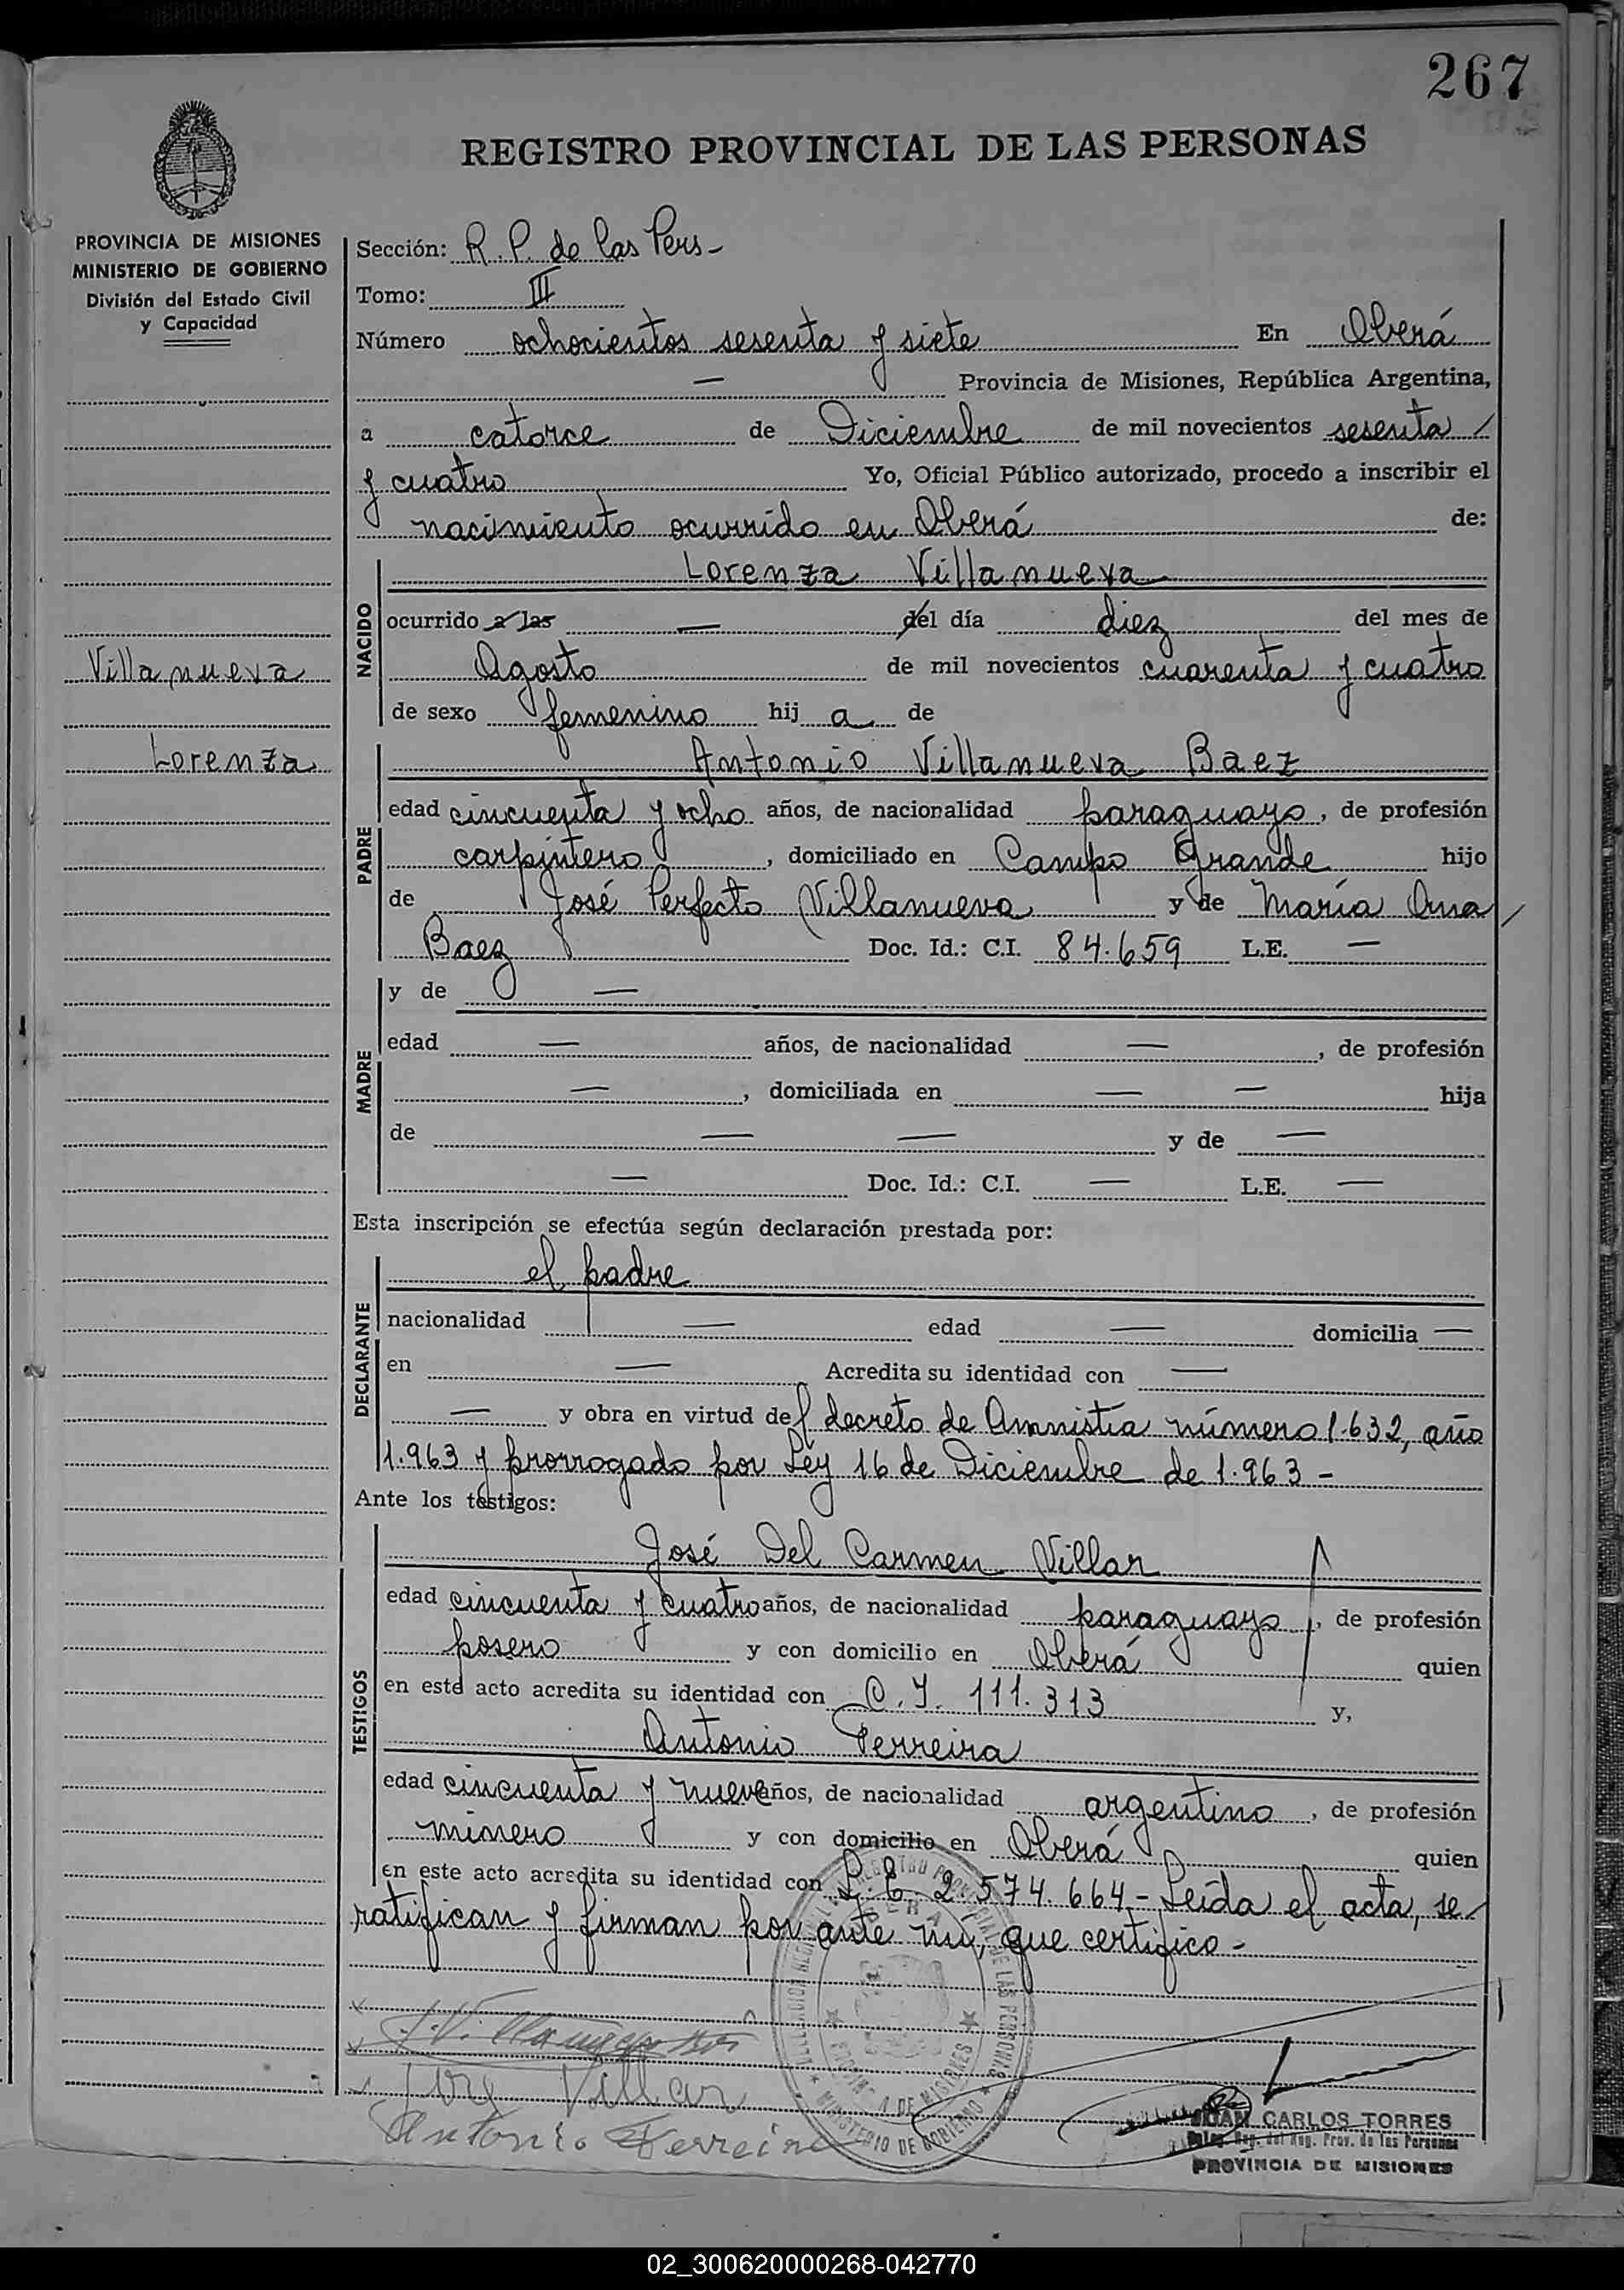 267
REGISTRO PROVINCIAL DE LAS PERSONAS
PROVINCIA DE MISIONES
MINISTERIO DE GOBIERNO
División del Estado Civil
y Capacidad
Villanueva
Lorenza
Sección: R. P. de las Pers-
Tomo: III
Número ochocientos sesenta y siete En Oberá
— Provincia de Misiones, República Argentina,
a catorce de Diciembre de mil novecientos sesenta /
y cuatro Yo, Oficial Público autorizado, procedo a inscribir el
nacimiento ocurrido en Oberá de:
NACIDO
Lorenza Villanueva
ocurrido a las — del día diez del mes de
Agosto de mil novecientos cuarenta y cuatro
de sexo femenino hij a de
PADRE
Antonio Villanueva Baez
edad cincuenta y ocho años, de nacionalidad paraguayo, de profesión
carpintero, domiciliado en Campo Grande hijo
de José Perfecto Villanueva y de María Ana /
Baez Doc. Id.: C.I. 84.659 L.E. —
MADRE
y de —
edad — años, de nacionalidad —, de profesión
—, domiciliada en — — hija
de — — y de —
— Doc. Id.: C.I. — L.E. —
Esta inscripción se efectúa según declaración prestada por:
DECLARANTE
el padre
nacionalidad — edad — domicilia —
en — Acredita su identidad con —
— y obra en virtud del decreto de Amnistía número 1.632, año
1.963 y prorrogado por Ley 16 de Diciembre de 1.963 -
Ante los testigos:
TESTIGOS
José Del Carmen Villar
edad cincuenta y cuatro años, de nacionalidad paraguayo, de profesión
posero y con domicilio en Oberá quien
en este acto acredita su identidad con C. I. 111.313 y,
Antonio Ferreira
edad cincuenta y nueve años, de nacionalidad argentino, de profesión
minero y con domicilio en Oberá quien
en este acto acredita su identidad con L. E. 2.574.664 - Leída el acta, se
ratifican y firman por ante mí, que certifico -
Villar
Antonio Ferreira
MINISTERIO DE GOBIERNO
JUAN CARLOS TORRES
Reg. del Reg. Prov. de las Personas
PROVINCIA DE MISIONES
02_300620000268-042770